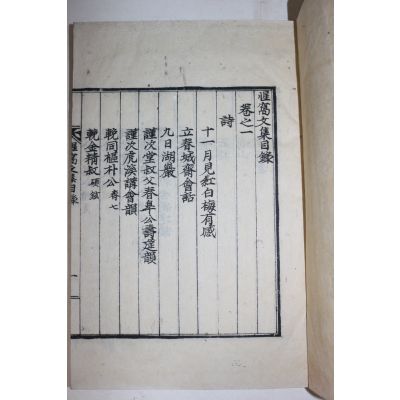 惺窩文集目錄
卷之一
詩
十一月見紅白梅有感
立春城齋會話
九日湖巖
謹次堂叔父春皐公壽筵韻
謹次虎溪講會韻
輓同樞朴公春七
輓金精叔碩鉉
惺窩文集目錄
一